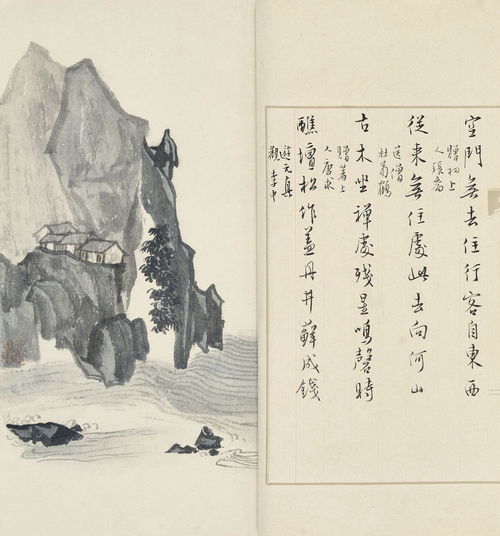 空門無去住行客自東西
贈初上
人張喬
從來無住處此去向何山
送僧
杜荀鶴
古木坐禪處殘星鳴磬時
贈著上
人唐求
醮壇松作蓋丹井蘚成錢
遊元真
觀李中